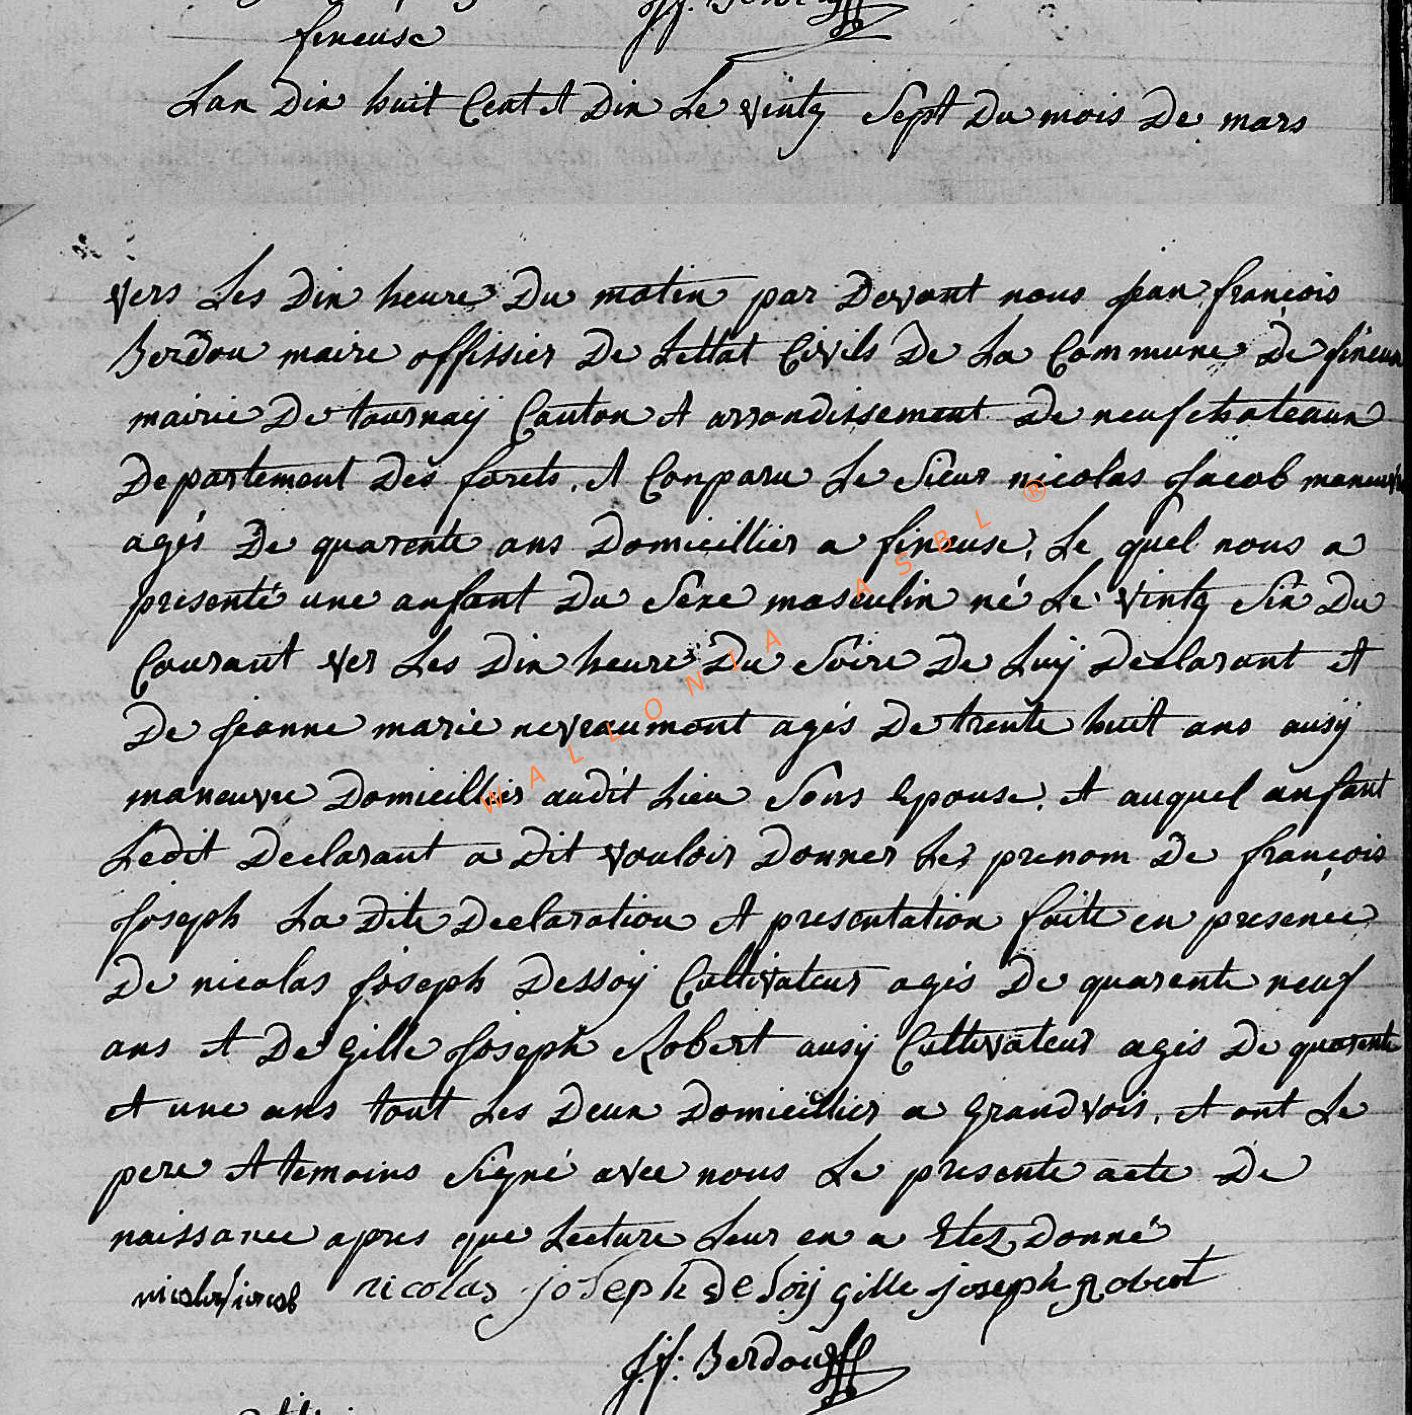 fineuse
Lan Dix huit Cent et Dix Le vintg Sept Du mois De mars
vers Les Dix heure Du matin par Devant nous jean françois
Berdou maire offissier De Lettat Civils De La Commune De fineuse
mairie De tournaÿ Canton et arrondissement De neufchateaux
Departement Des forets. et Conparu Le Sieur nicolas Jacob maneuvre
agés De quarente ans Domicillier a fineuse, Le quel nous a
presenté une anfant Du Sexe masculin né Le vintg Six Du
Courant ver Les Dix heure Du Soire De Luÿ Declarant et
De jeanne marie nevraumont agés De trente huit ans ausÿ
maneuvre Domicillier audit Lieu Sons Epouse. et auquel anfant
Ledit Declarant a Dit vouloir Donner Les prenom De françois
Joseph La Dite Declaration et presentation faite en presence
De nicolas joseph Dessoÿ Cultivateur agés De quarente neuf
ans et De gille Joseph Robert ausÿ Cultivateur agés De quarente
et une ans tout Les Deux Domicillier a grandvoir. et ont Le
pere et temoins Signé avec nous Le presente acte De
naissance apres que Lecture Leur en a Etez Donné
nicolas jacob nicolas joseph deSoÿ gille joseph Robert
J.f. Berdou
WALLONIA ASBL ®